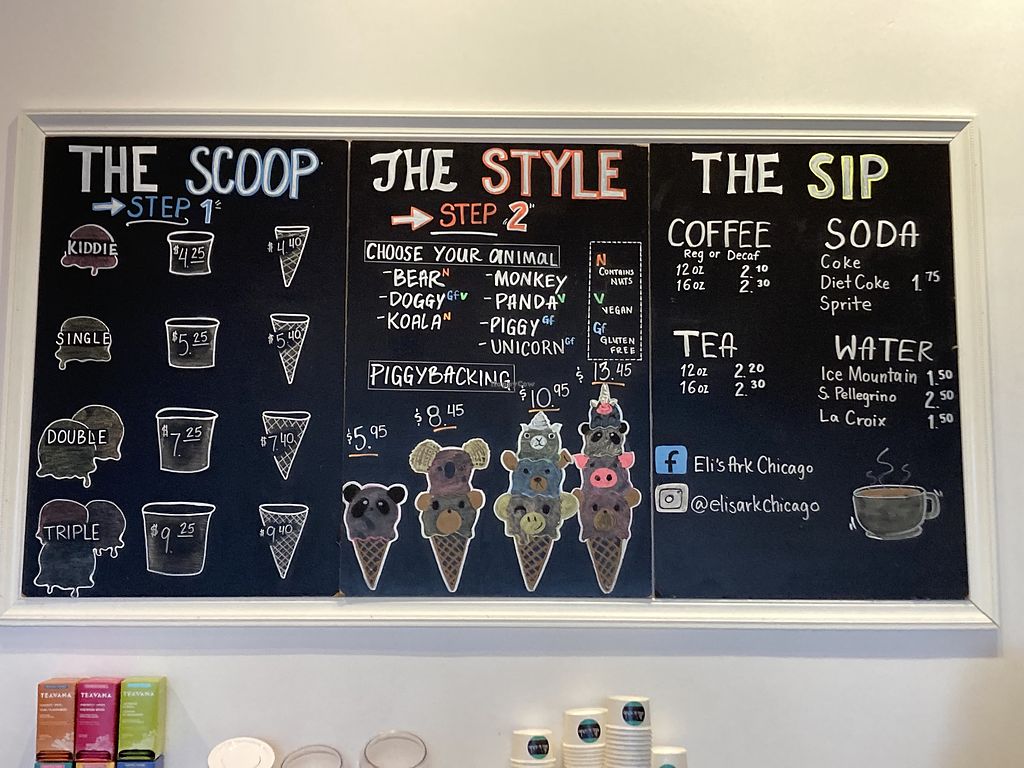 THE SCOOP
STEP 1
KIDDIE $4.25 $4.40
SINGLE $5.25 $5.40
DOUBLE $7.25 $7.40
TRIPLE $9.25 $9.40
THE STYLE
STEP 2
CHOOSE YOUR ANIMAL
-BEAR N
-DOGGY GF V
-KOALA N
-MONKEY
-PANDA V
-PIGGY GF
-UNICORN GF
N CONTAINS NUTS
V VEGAN
GF GLUTEN FREE
PIGGYBACKING
$5.95
$8.45
$10.95
$13.45
THE SIP
COFFEE
Reg or Decaf
12oz 2.10
16oz 2.30
TEA
12oz 2.20
16oz 2.30
SODA
Coke
Diet Coke 1.75
Sprite
WATER
Ice Mountain 1.50
S. Pellegrino 2.50
La Croix 1.50
f Eli's Ark Chicago
@elisarkChicago
TEAVANA
TEAVANA
TEAVANA